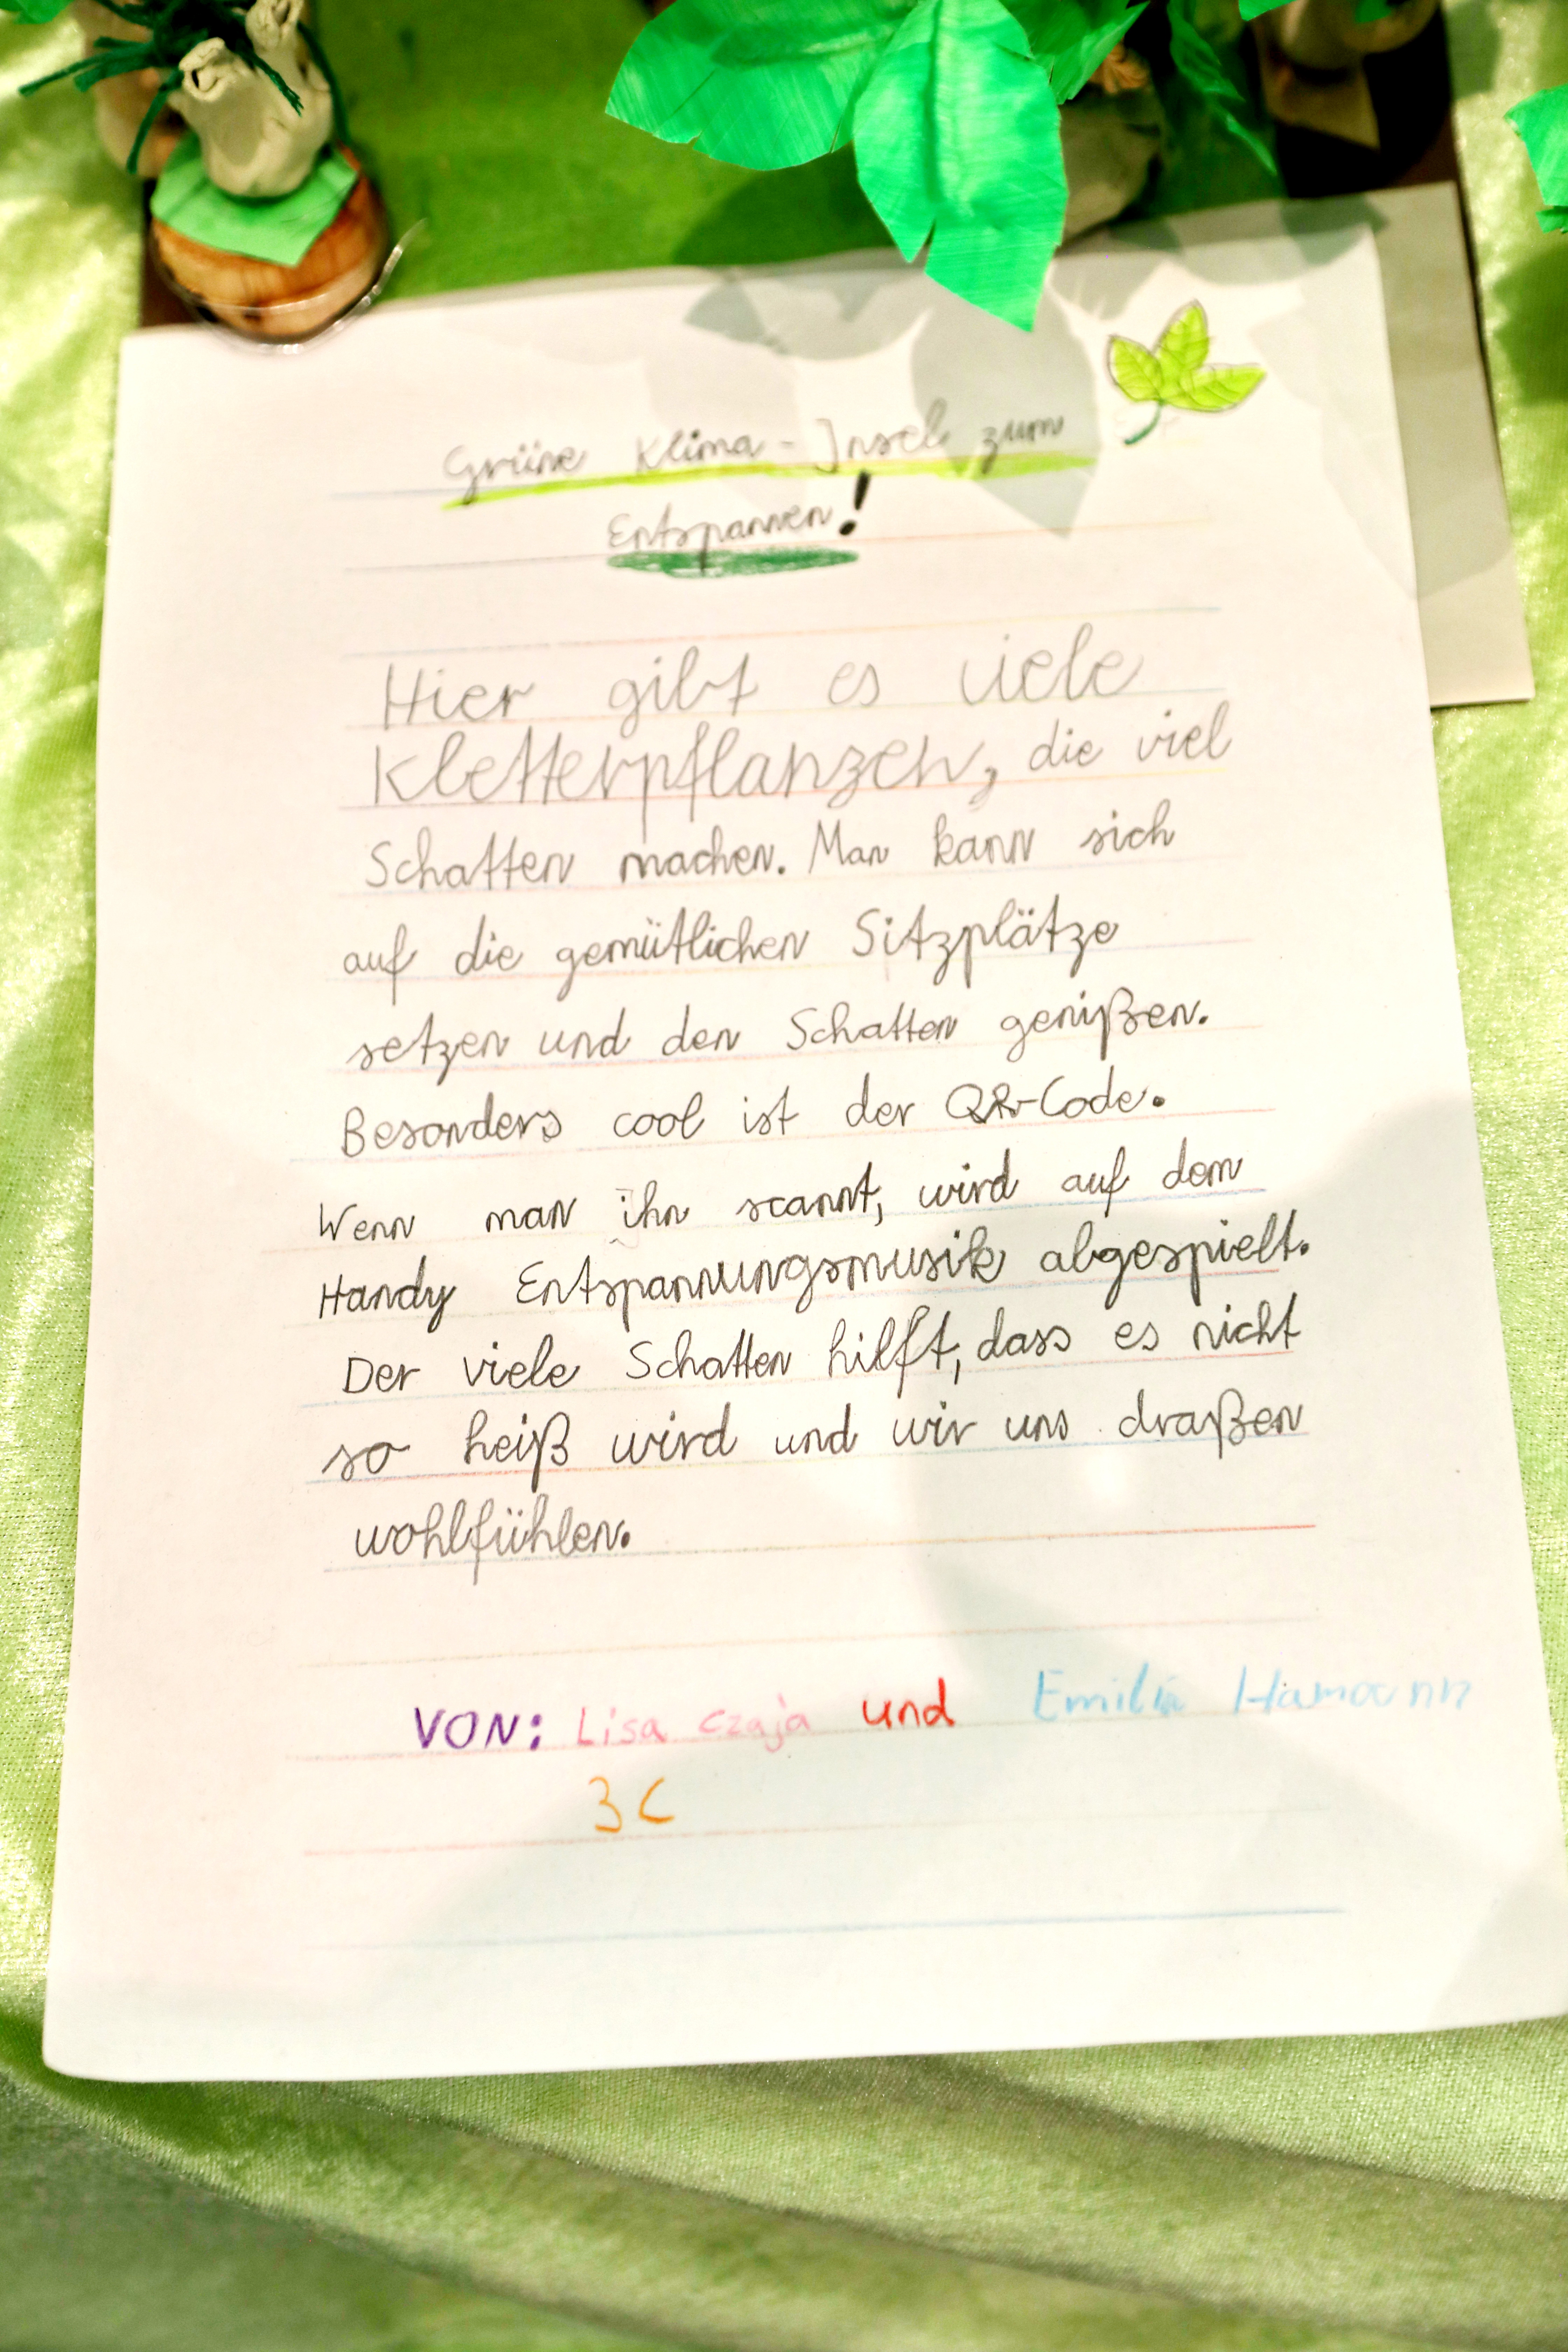 Grüne Klima-Insel zum
Entspannen!
Hier gibt es viele
Kletterpflanzen, die viel
Schatten machen. Man kann sich
auf die gemütlichen Sitzplätze
setzen und den Schatten genißen.
Besonders cool ist der QR-Code.
Wenn man ihn scannt, wird auf dem
Handy Entspannungsmusik abgespielt.
Der viele Schatten hilft, dass es nicht
so heiß wird und wir uns draßen
wohlfühlen.
VON: Lisa Czaja und Hamann
3C